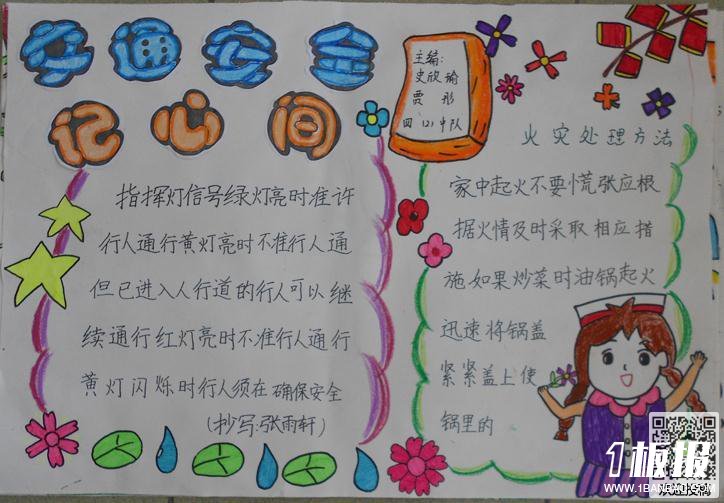 交通安全
记心间
主编:
史欣瑜
贾彤
四(2)中队
指挥灯信号绿灯亮时准许
行人通行黄灯亮时不准行人通
但已进入人行道的行人可以继
续通行红灯亮时不准行人通行
黄灯闪烁时行人须在确保安全
(抄写:张雨轩)
火灾处理方法
家中起火不要慌张应根
据火情及时采取相应措
施如果炒菜时油锅起火
迅速将锅盖
紧紧盖上使
锅里的
1板报
WWW.1BANBAO.COM